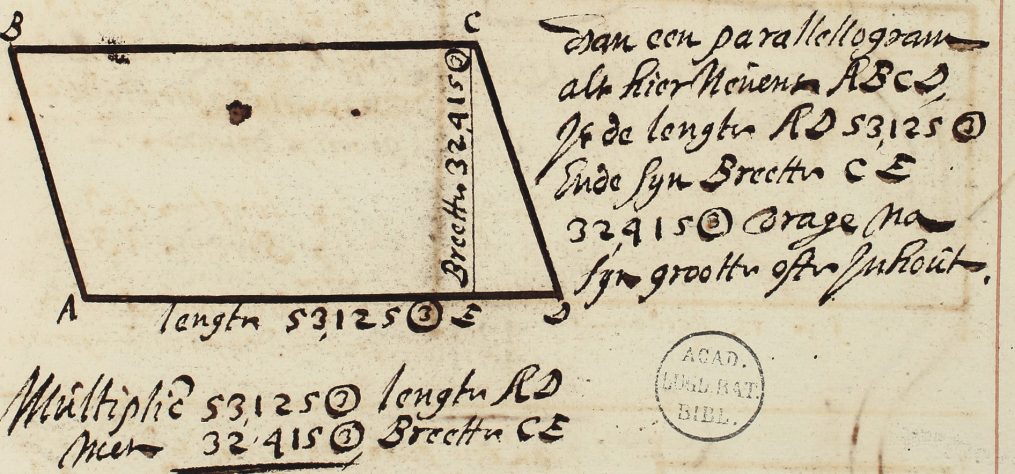 B
C
Van een parallellogram
als hier Nevens ABCD,
Is de lengte AD 53,125 ③
Ende syn Breette CE
32,415 ③ Vrage Na
syn grootte ofte Inhout.
Breette 32,415 ③
A
lengte 53,125 ③ E
D
ACAD.
LUGD. BAT.
BIBL.
Multiplic 53,125 ③ lengte AD
Met 32,415 ③ Breette CE